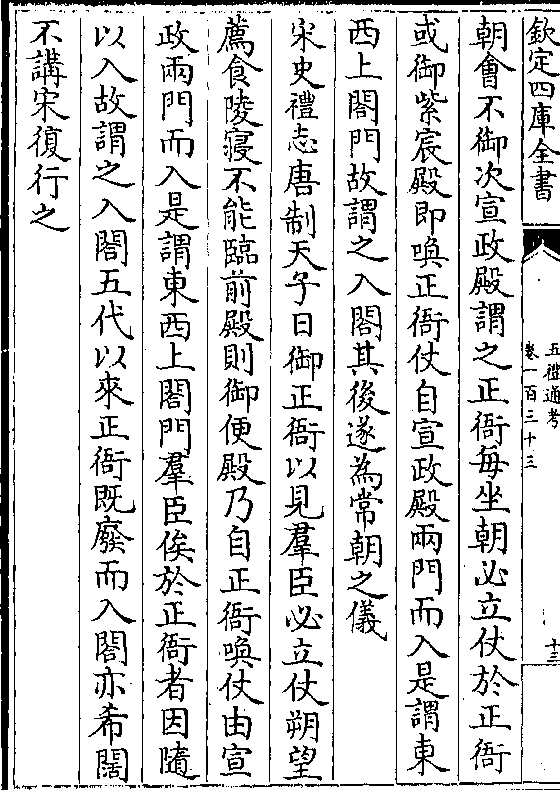 欽定四庫全書
五禮通考
卷一百三十三
十三
朝會不御次宣政殿謂之正衙每坐朝必立仗於正衙
或御紫宸殿即喚正衙仗自宣政殿兩門而入是謂東
西上閤門故謂之入閤其後遂為常朝之儀
宋史禮志唐制天子日御正衙以見羣臣必立仗朔望
薦食陵寢不能臨前殿則御便殿乃自正衙喚仗由宣
政兩門而入是謂東西上閤門羣臣俟於正衙者因隨
以入故謂之入閤五代以來正衙既廢而入閤亦希闊
不講宋復行之